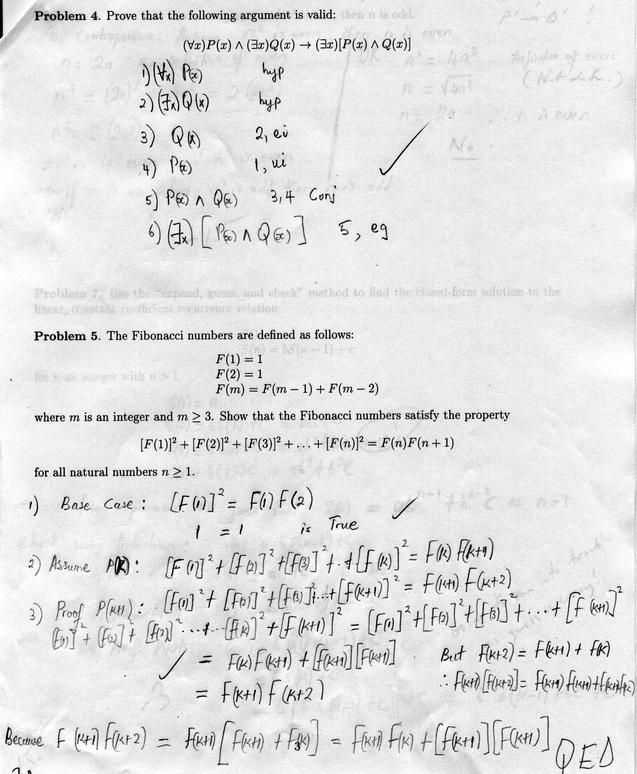 Problem 4. Prove that the following argument is valid:
(∀x)P(x) ∧ (∃x)Q(x) → (∃x)[P(x) ∧ Q(x)]
1) (∀x) P(x) hyp
2) (∃x) Q(x) hyp
3) Q(x) 2, ei
4) P(x) 1, ui
5) P(x) ∧ Q(x) 3,4 Conj
6) (∃x) [P(x) ∧ Q(x)] 5, eg
Problem 7. Use the "expand, guess, and check" method to find the closed-form solution to the
linear, constant coefficient recurrence relation
Problem 5. The Fibonacci numbers are defined as follows:
F(1) = 1
F(2) = 1
F(m) = F(m − 1) + F(m − 2)
where m is an integer and m ≥ 3. Show that the Fibonacci numbers satisfy the property
[F(1)]² + [F(2)]² + [F(3)]² + ... + [F(n)]² = F(n)F(n + 1)
for all natural numbers n ≥ 1.
1) Base Case: [F(1)]² = F(1) F(2)
1 = 1 is True
2) Assume P(k): [F(1)]² + [F(2)]² + [F(3)]² + .. + [F(k)]² = F(k) F(k+1)
3) Proof P(k+1): [F(1)]² + [F(2)]² + [F(3)]² + ... + [F(k+1)]² = F(k+1) F(k+2)
[F(1)]² + [F(2)]² + [F(3)]² ... + [F(k)]² + [F(k+1)]² = [F(1)]² + [F(2)]² + [F(3)]² + ... + [F(k+1)]²
= F(k) F(k+1) + [F(k+1)] [F(k+1)] But F(k+2) = F(k+1) + F(k)
= F(k+1) F(k+2) ∴ F(k+1) [F(k+2)] = F(k+1) F(k+1) + F(k+1) F(k)
Because F(k+1) F(k+2) = F(k+1) [F(k+1) + F(k)] = F(k+1) F(k) + [F(k+1)] [F(k+1)] QED